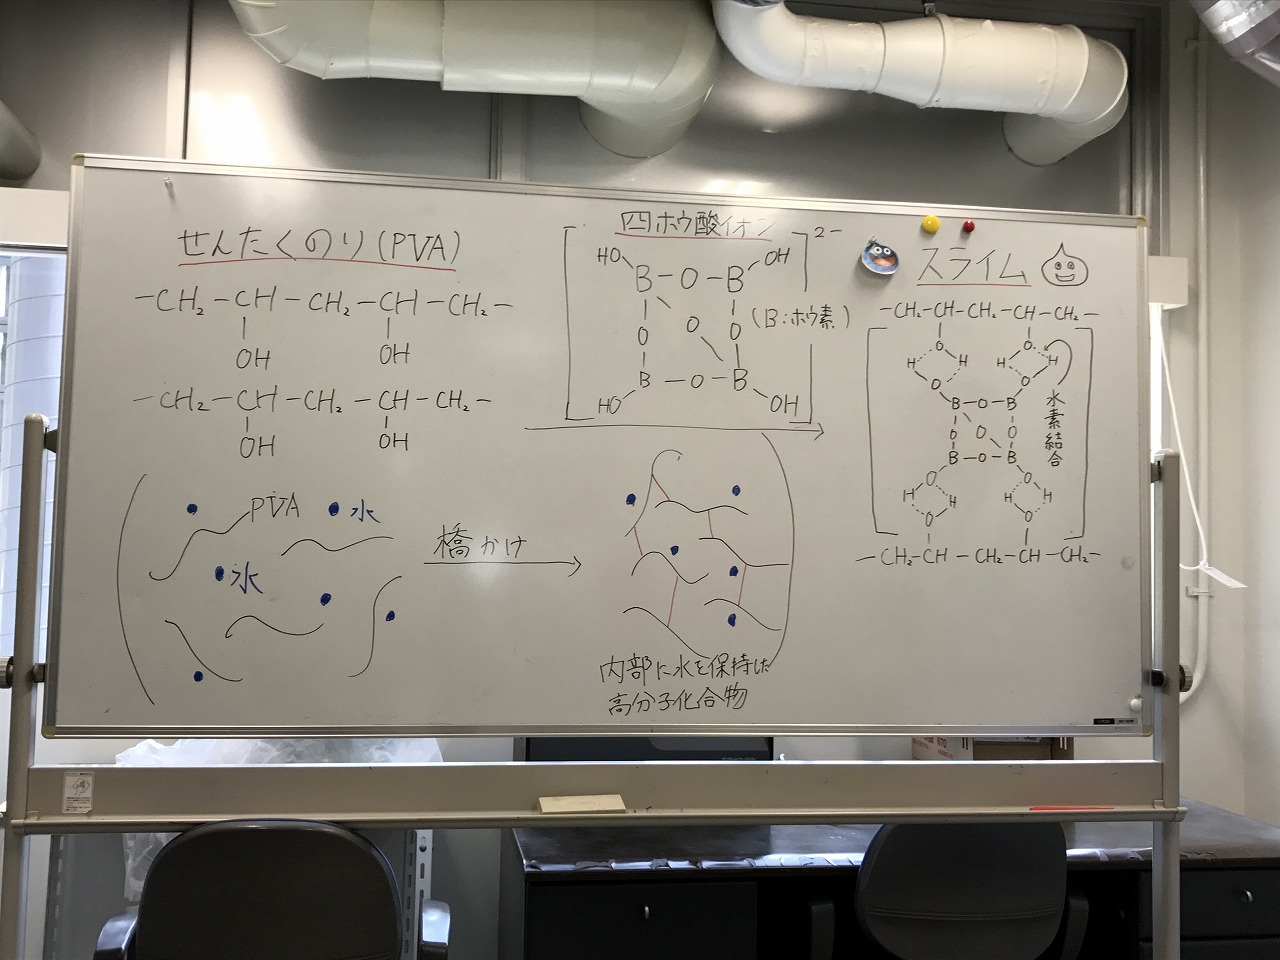 せんたくのり(PVA)
-CH₂-CH-CH₂-CH-CH₂-
OH OH
-CH₂-CH-CH₂-CH-CH₂-
OH OH
四ホウ酸イオン
2-
HO OH
B-O-B
O O O
B-O-B
HO OH
(B:ホウ素)
スライム
-CH₂-CH-CH₂-CH-CH₂-
O O
H H H H
O O
B-O-B
O O O
B-O-B
O O
H H H H
O O
-CH₂-CH-CH₂-CH-CH₂-
水素結合
PVA
水
水
橋かけ
内部に水を保持した
高分子化合物